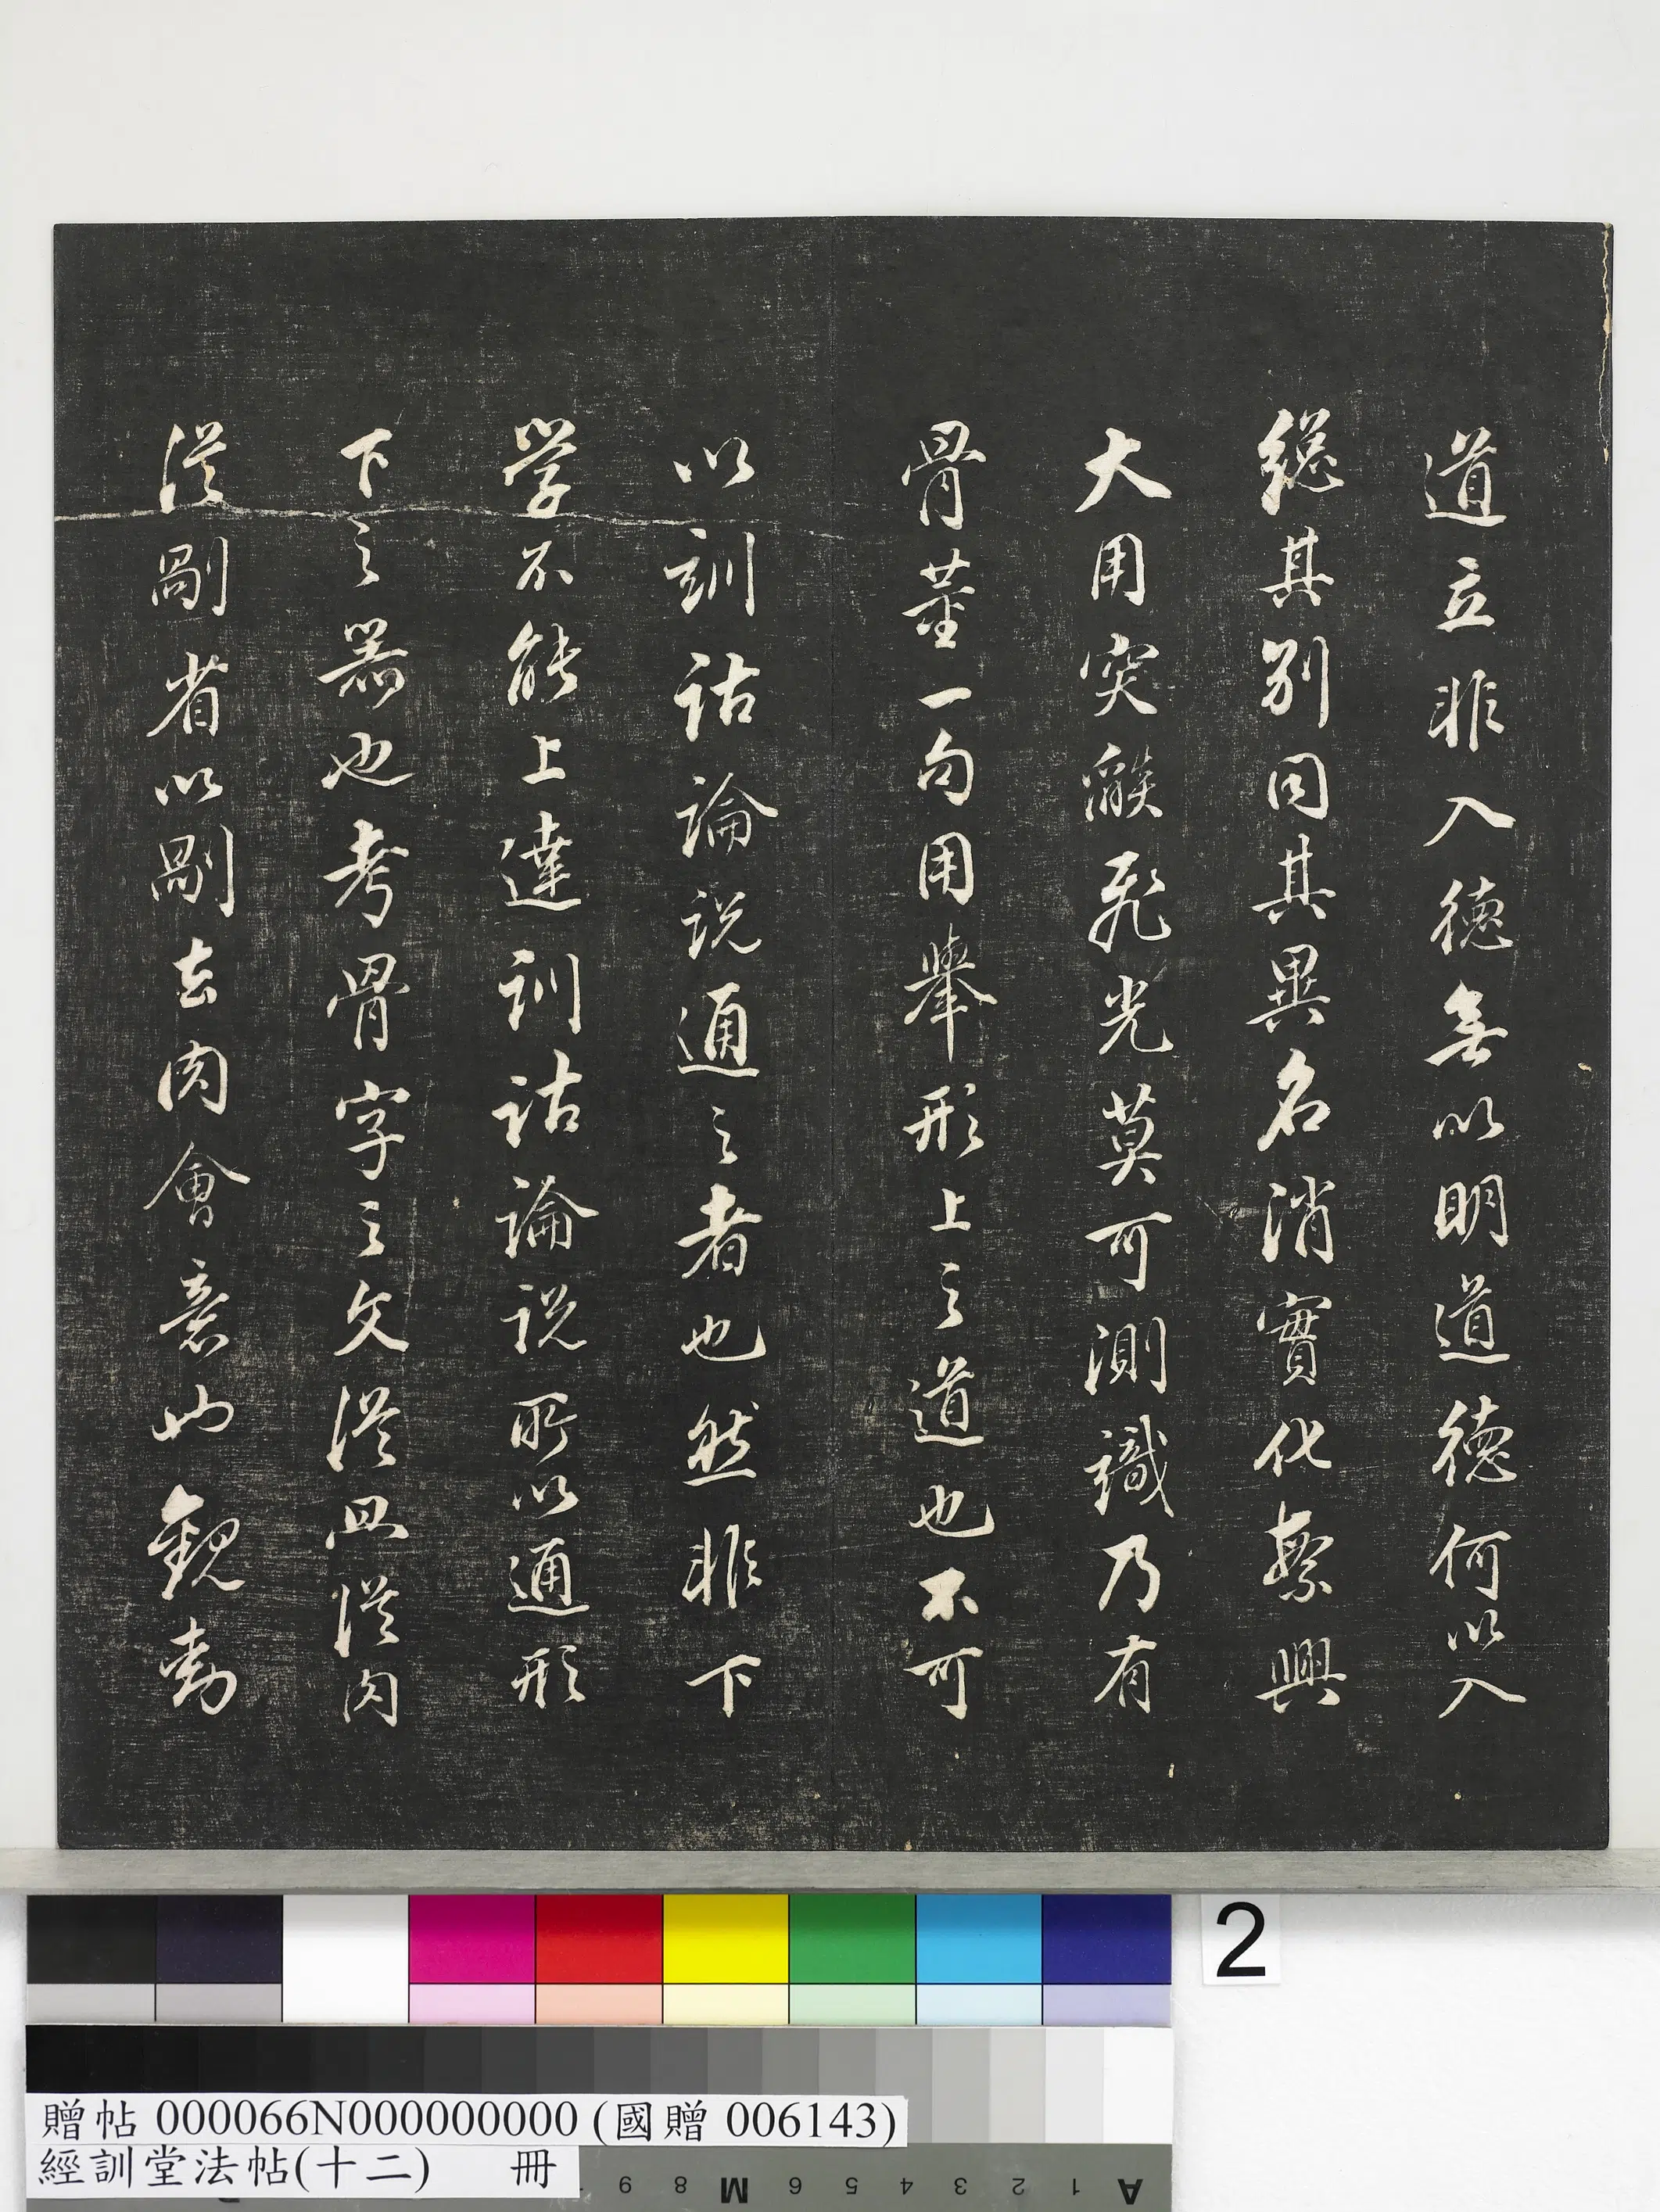 道立非入德無以明道德何以入
總其別同其異名消實化繁興
大用突飛光莫可測識乃有
骨董一句用舉形上之道也不可
以訓詁論説通之者也然非下
学不能上達訓詁論説所以通形
下之器也考骨字之文從皿從肉
從剮省以剮去肉會意觀
2
贈帖 000066N000000000 (國贈 006143)
經訓堂法帖(十二) 冊
A 1 2 3 4 5 6 M 8 9